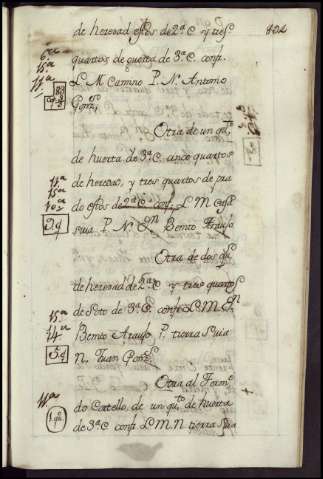 de heredad estos de 2ª C y tres
802
quartos de guerta de 3ª C. conf.
L M Camino P. Nte Antonio
Gonzs
Otra de un qto
de huerta de 3ª C. cinco quartos
de heredad, y tres quartos de pra
do estos de 2ª C conf. L M
suia P. N Dn Benito Araujo
Otra de dos qtos
de heredad de 2ª C y tres quartos
de soto de 3ª C. conf. L M Dn
Benito Araujo P. tierra suia
N. Juan Gonzs
Otra al Form
do Cortello, de un qto de huerta
de 3ª C conf. L M N tierra suia
6ª
15ª
11ª
11ª
15ª
10ª
2 q
15ª
14ª
5 q
11ª
1 q